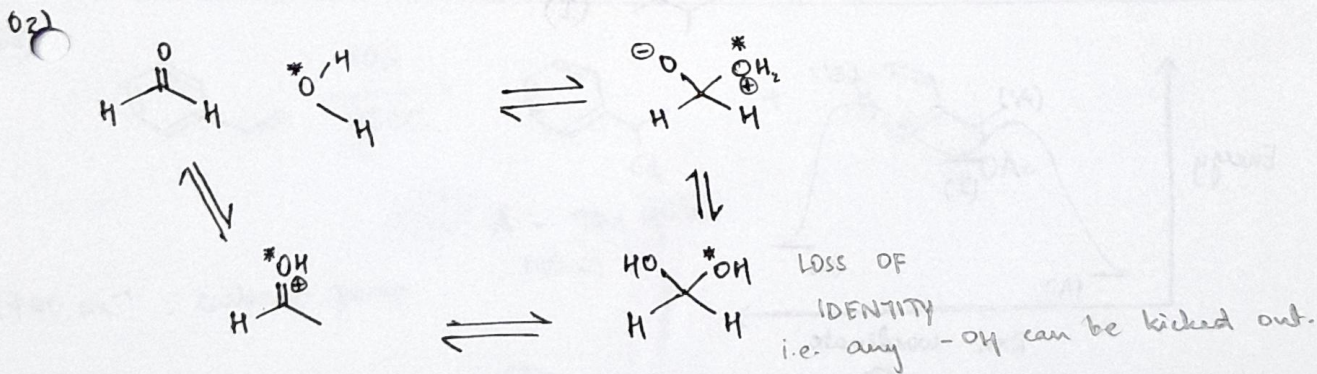 02)
O
H H
* O H
H
⊖ O * OH₂ ⊕
H H
* OH ⊕
H
HO * OH
H H
LOSS OF
IDENTITY
i.e. any -OH can be kicked out.